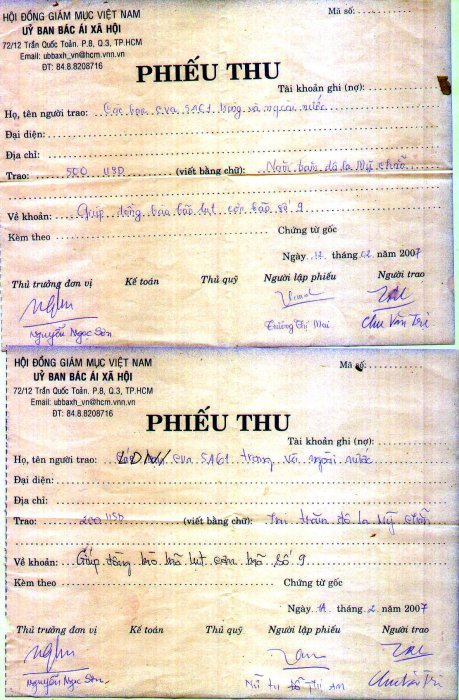 HỘI ĐỒNG GIÁM MỤC VIỆT NAM
Mã số:
UỶ BAN BÁC ÁI XÃ HỘI
72/12 Trần Quốc Toản. P.8, Q.3, TP.HCM
Email: ubbaxh_vn@hcm.vnn.vn
ĐT: 84.8.8208716
PHIẾU THU
Tài khoản ghi (nợ):
Họ, tên người trao: Các bạn cựu SA61 trong và ngoài nước
Đại diện:
Địa chỉ:
Trao: 500 USD (viết bằng chữ): Năm trăm đô la Mỹ chẵn
Về khoản: Giúp đồng bào bão lụt cơn bão số 9
Kèm theo Chứng từ gốc
Ngày 12 tháng 02 năm 2007
Thủ trưởng đơn vị Kế toán Thủ quỹ Người lập phiếu Người trao
Nguyễn Ngọc Sơn Trương Thị Mai Chu Văn Tri
HỘI ĐỒNG GIÁM MỤC VIỆT NAM
Mã số:
UỶ BAN BÁC ÁI XÃ HỘI
72/12 Trần Quốc Toản. P.8, Q.3, TP.HCM
Email: ubbaxh_vn@hcm.vnn.vn
ĐT: 84.8.8208716
PHIẾU THU
Tài khoản ghi (nợ):
Họ, tên người trao: cựu SA61 trong và ngoài nước
Đại diện:
Địa chỉ:
Trao: 200 USD (viết bằng chữ): trăm đô la Mỹ chẵn
Về khoản: Giúp đồng bào bão lụt cơn bão số 9
Kèm theo Chứng từ gốc
Ngày tháng 2 năm 2007
Thủ trưởng đơn vị Kế toán Thủ quỹ Người lập phiếu Người trao
Nguyễn Ngọc Sơn Chu Văn Tri